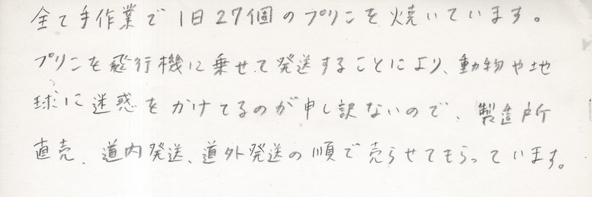 全て手作業で1日27個のプリンを焼いています。
プリンを飛行機に乗せて発送することにより、動物や地
球に迷惑をかけてるのが申し訳ないので、製造所
直売、道内発送、道外発送の順で売らせてもらっています。